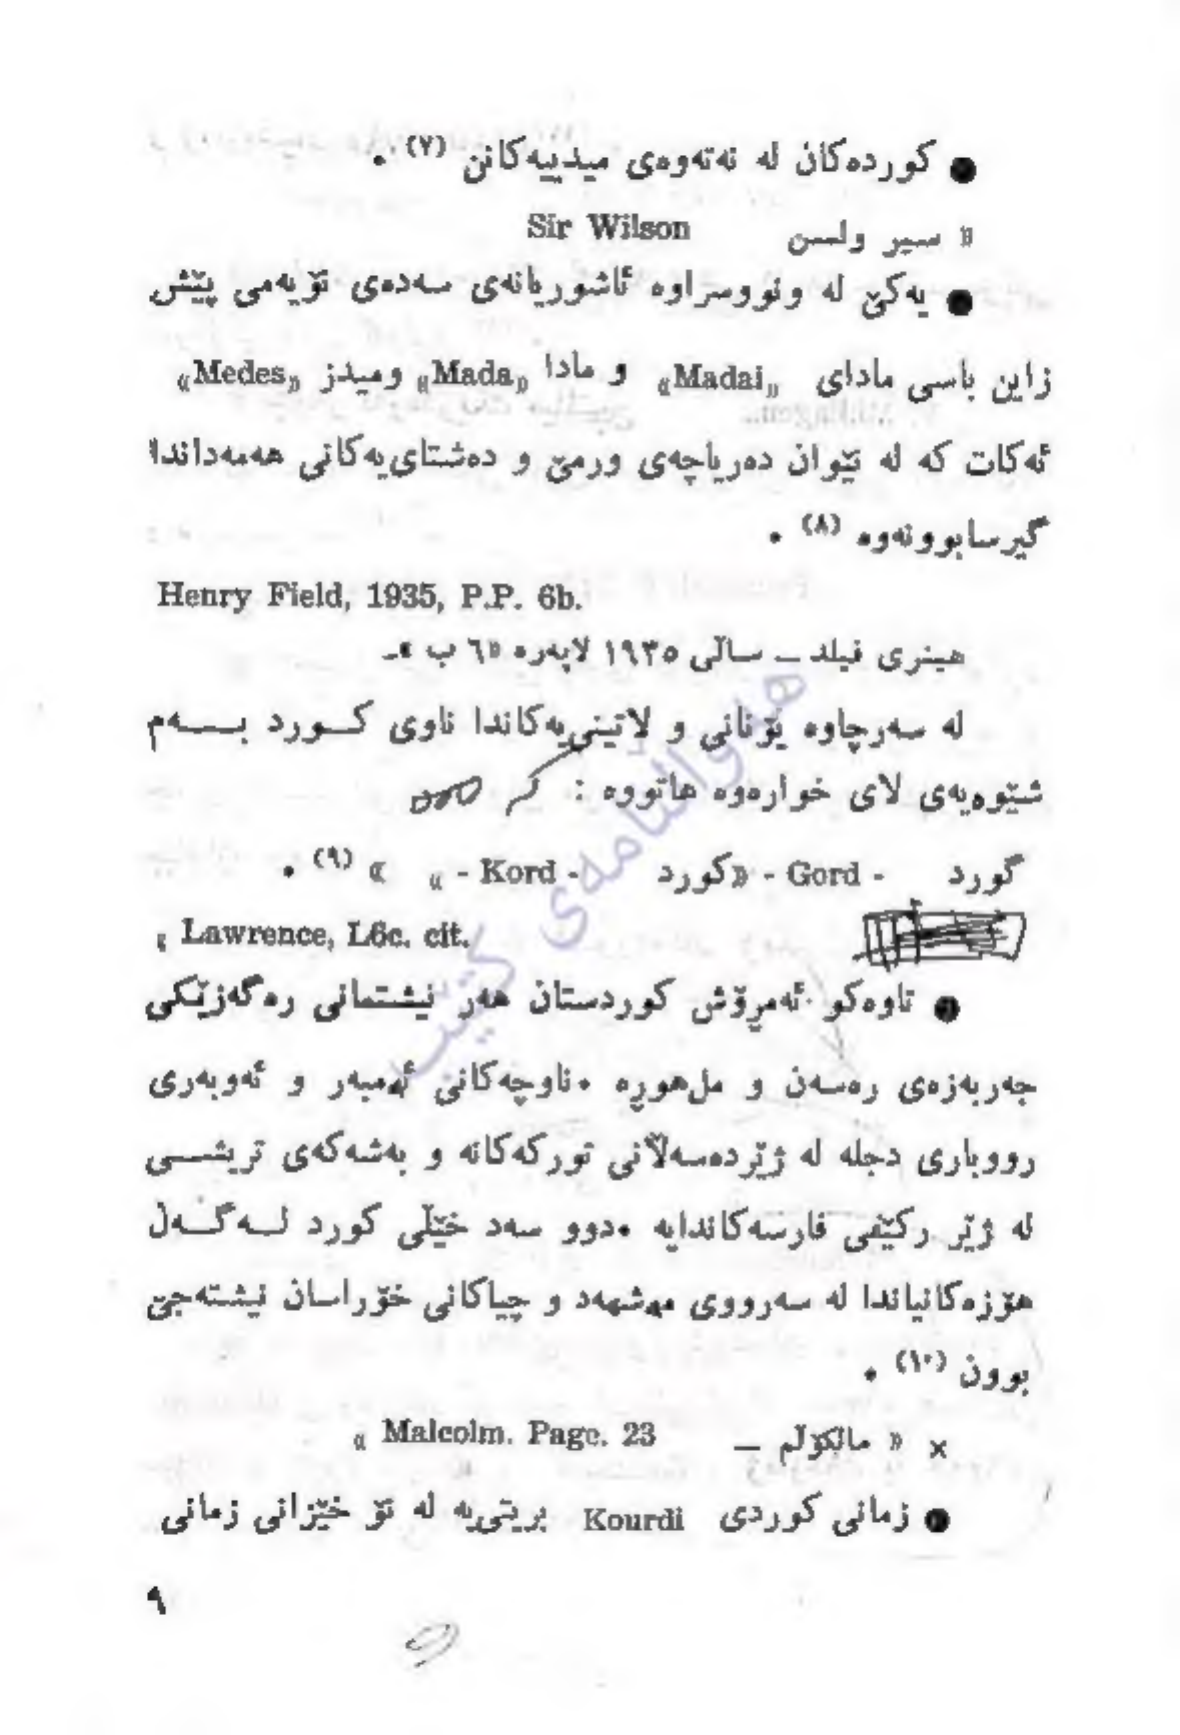 ● کوردەکان لە نەتەوەی میدییەکانن (٧) .
« سیر ولسن Sir Wilson
● یەکێ لە ونووسراوە ئاشوریانەی سەدەی نۆیەمی پێش
زاین باسی مادای «Madai» و مادا «Mada» ومیدز «Medes»
ئەکات کە لە نێوان دەریاچەی ورمێ و دەشتایی‌یەکانی هەمەداندا
گیرسابوونەوە (٨) .
Henry Field, 1935, P.P. 6b.
هینری فیلد ـ ساڵی ١٩٣٥ لاپەرە «٦ ب»ـ
لە سەرچاوە یۆنانی و لاتینی‌یەکاندا ناوی کــورد بــەم
شێوەیەی لای خوارەوە هاتووە :
گورد - Gord - «کورد - Kord - » » (٩) .
« Lawrence, L6c. cit.
● تاوەکو ئەمڕۆش کوردستان هەر نیشتمانی رەگەزێکی
جەربەزەی رەسەن و مل‌هوڕە .ناوچەکانی ئەمبەر و ئەوبەری
رووباری دجلە لە ژێردەسەڵانی تورکەکانە و بەشەکەی تریشــی
لە ژێر رکێفی فارسەکاندایە .دوو سەد خێڵی کورد لــەگــەڵ
هۆزەکانیاندا لە سەرووی مەشهەد و چیاکانی خۆراسان نیشتەجێ
بوون (١٠) .
× « مالکۆلم ـ Malcolm. Page. 23 »
● زمانی کوردی Kourdi بریتی‌یە لە نۆ خێزانی زمانی
٩
هەواڵنامەی کتێب